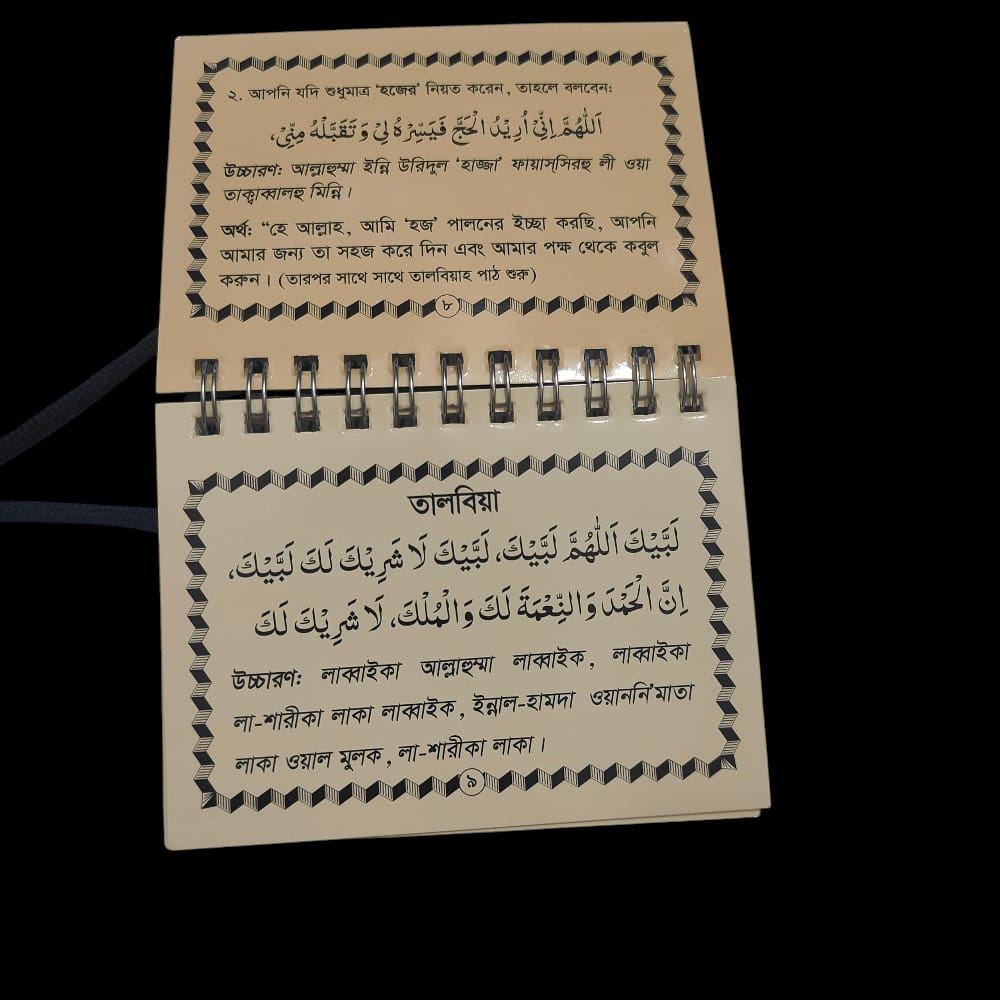 ২. আপনি যদি শুধুমাত্র ‘হজের’ নিয়ত করেন, তাহলে বলবেন:
اَللّٰهُمَّ اِنِّیْ اُرِیْدُ الْحَجَّ فَیَسِّرْهُ لِیْ وَ تَقَبَّلْهُ مِنِّیْ،
উচ্চারণ: আল্লাহুম্মা ইন্নি উরিদুল ‘হাজ্জা’ ফায়াস্‌সিরহু লী ওয়া
তাক্বাব্বালহু মিন্নি।
অর্থ: “হে আল্লাহ, আমি ‘হজ’ পালনের ইচ্ছা করছি, আপনি
আমার জন্য তা সহজ করে দিন এবং আমার পক্ষ থেকে কবুল
করুন। (তারপর সাথে সাথে তালবিয়াহ পাঠ শুরু)
৮
তালবিয়া
لَبَّیْكَ اَللّٰهُمَّ لَبَّیْكَ، لَبَّیْكَ لَا شَرِیْكَ لَكَ لَبَّیْكَ،
اِنَّ الْحَمْدَ وَالنِّعْمَةَ لَكَ وَالْمُلْكَ، لَا شَرِیْكَ لَكَ
উচ্চারণ: লাব্বাইকা আল্লাহুম্মা লাব্বাইক, লাব্বাইকা
লা-শারীকা লাকা লাব্বাইক, ইন্নাল-হামদা ওয়াননি’মাতা
লাকা ওয়াল মুলক, লা-শারীকা লাকা।
৯